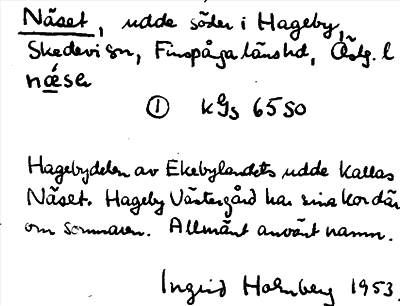 Näset, udde söder i Hageby,
Skedevi sn, Finspånga länshd, Östg. l
nǽset
① kgs 65 SO
Hagebydelen av Ekebylandets udde kallas
Näset. Hageby Västergård har sina kor där
om sommaren. Allmänt använt namn.
Ingrid Holmberg 1953.